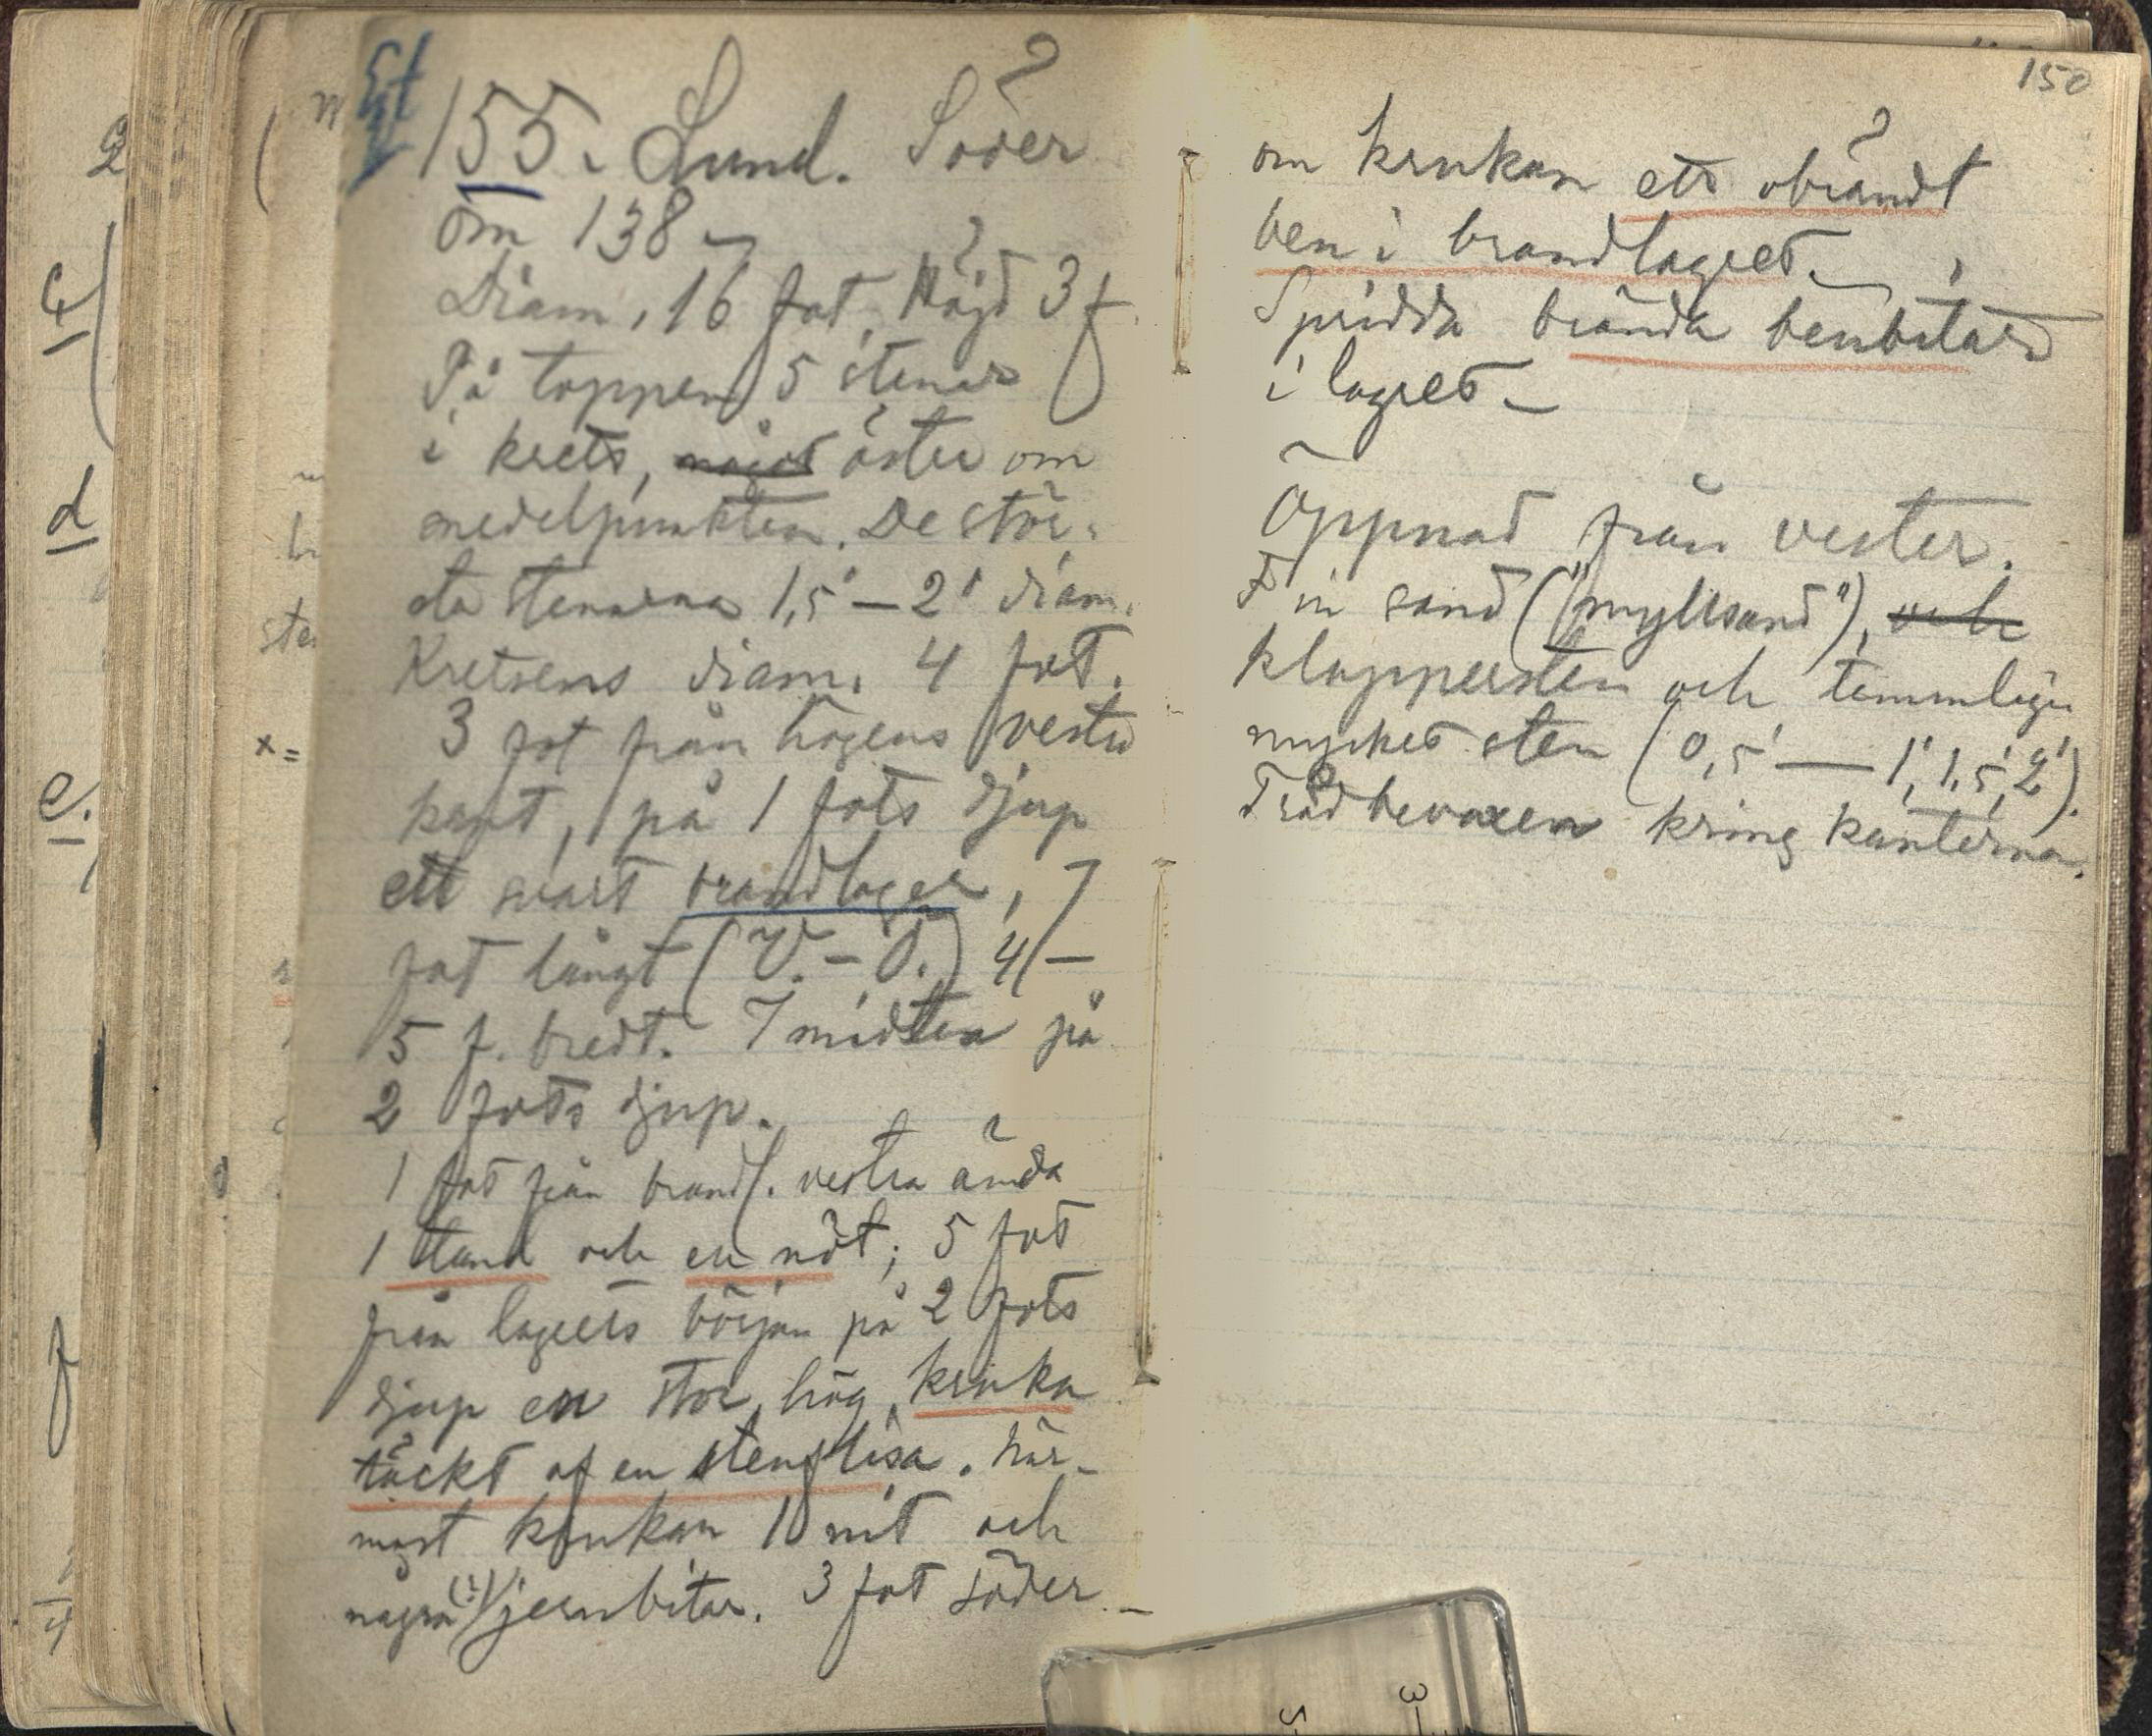 155. Lund. Söder
om 138 –
Diam. 16 fot. Höjd 3 f.
På toppen 5 stenar
i krets, något öster om
medelpunkten. De stör-
sta stenarna 1,5' – 2' diam.
Kretsens diam. 4 fot.
3 fot från högens vestra
kant, på 1 fots djup
ett svart brandlager, 7
fot långt (V. – Ö.) 4 –
5 f. bredt. I midten på
2 fots djup.
1 fot från brandl. vestra ända
1 tand och en nöt; 5 fot
från lagrets början på 2 fots
djup en stor, hög, kruka
täckt af en stenflisa. När-
mast krukan 1 nit och
några (?) jernbitar. 3 fot söder –
150
om krukan ett obrändt
ben i brandlagret. –
Spridda brända benbitar
i lagret –
Öppnad från vester.
Fin sand ("myllsand"), och
klappersten och temmligen
mycket sten (0,5' — 1', 1,5', 2').
Trädbevaxen kring kanterna.
c
d
e.
f
x =
3
5